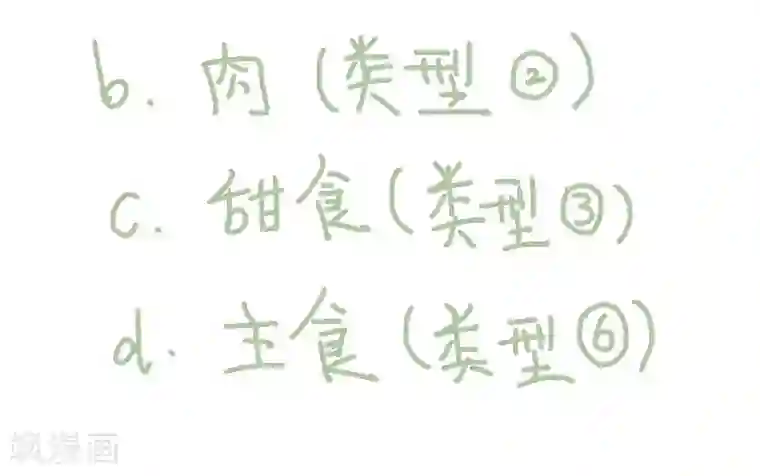 b. 肉 (类型②)
c. 甜食 (类型③)
d. 主食 (类型⑥)
飒漫画